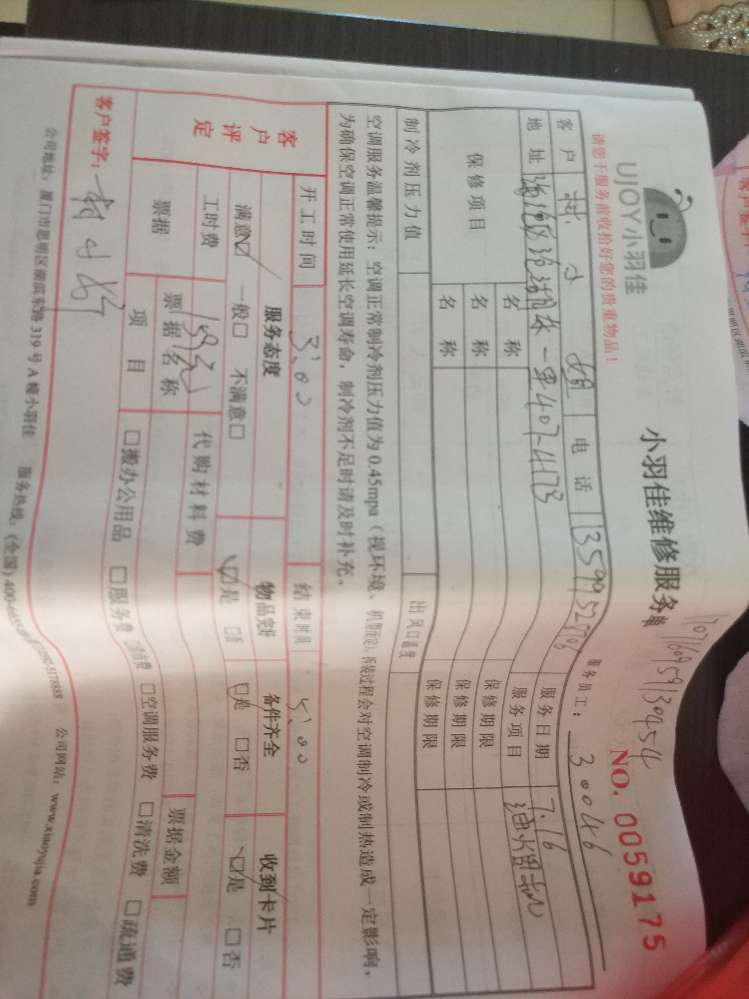 UJOY小羽佳
小羽佳维修服务单
NO. 0059175
请您于服务前收拾好您的贵重物品!
服务员工: 30046
客户 小 电话
服务日期 7.16
地址 一里407-4173
服务项目
保修项目 名称 保修期限
名称 保修期限
名称 保修期限
制冷剂压力值 出风口温度
空调服务温馨提示: 空调正常制冷剂压力值为 0.45mpa (视环境、机型而定), 拆装过程会对空调制冷或制热造成一定影响,
为确保空调正常使用延长空调寿命, 制冷剂不足时请及时补充。
开工时间 3:00 结束时间 5:00
客户评定
服务态度 物品完好 备件齐全 收到卡片
满意☑ 一般□ 不满意□ ☑是 □否 ☑是 □否 ☑是 □否
工时费 代购材料费
票据 票据名称 票据金额
项目 □搬办公用品 □服务费 □空调服务费 □清洗费 □疏通费
客户签字:
公司地址: 厦门市思明区湖滨东路 319 号 A 幢小羽佳 服务热线: (全国) 公司网站: www.xiaoyujia.com